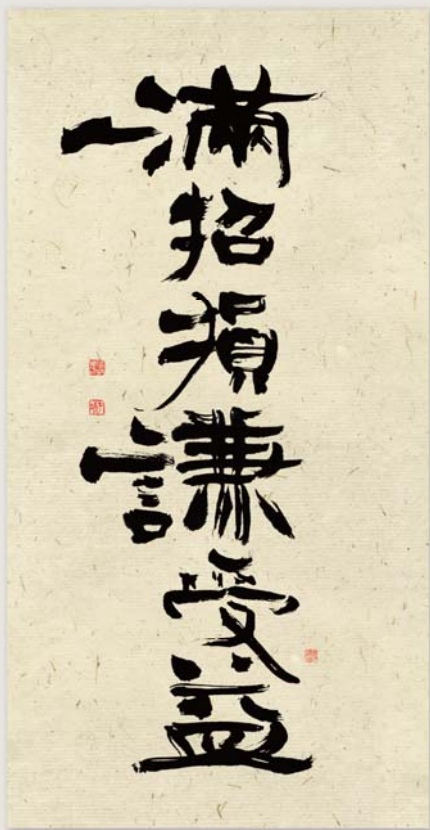 滿招損謙受益